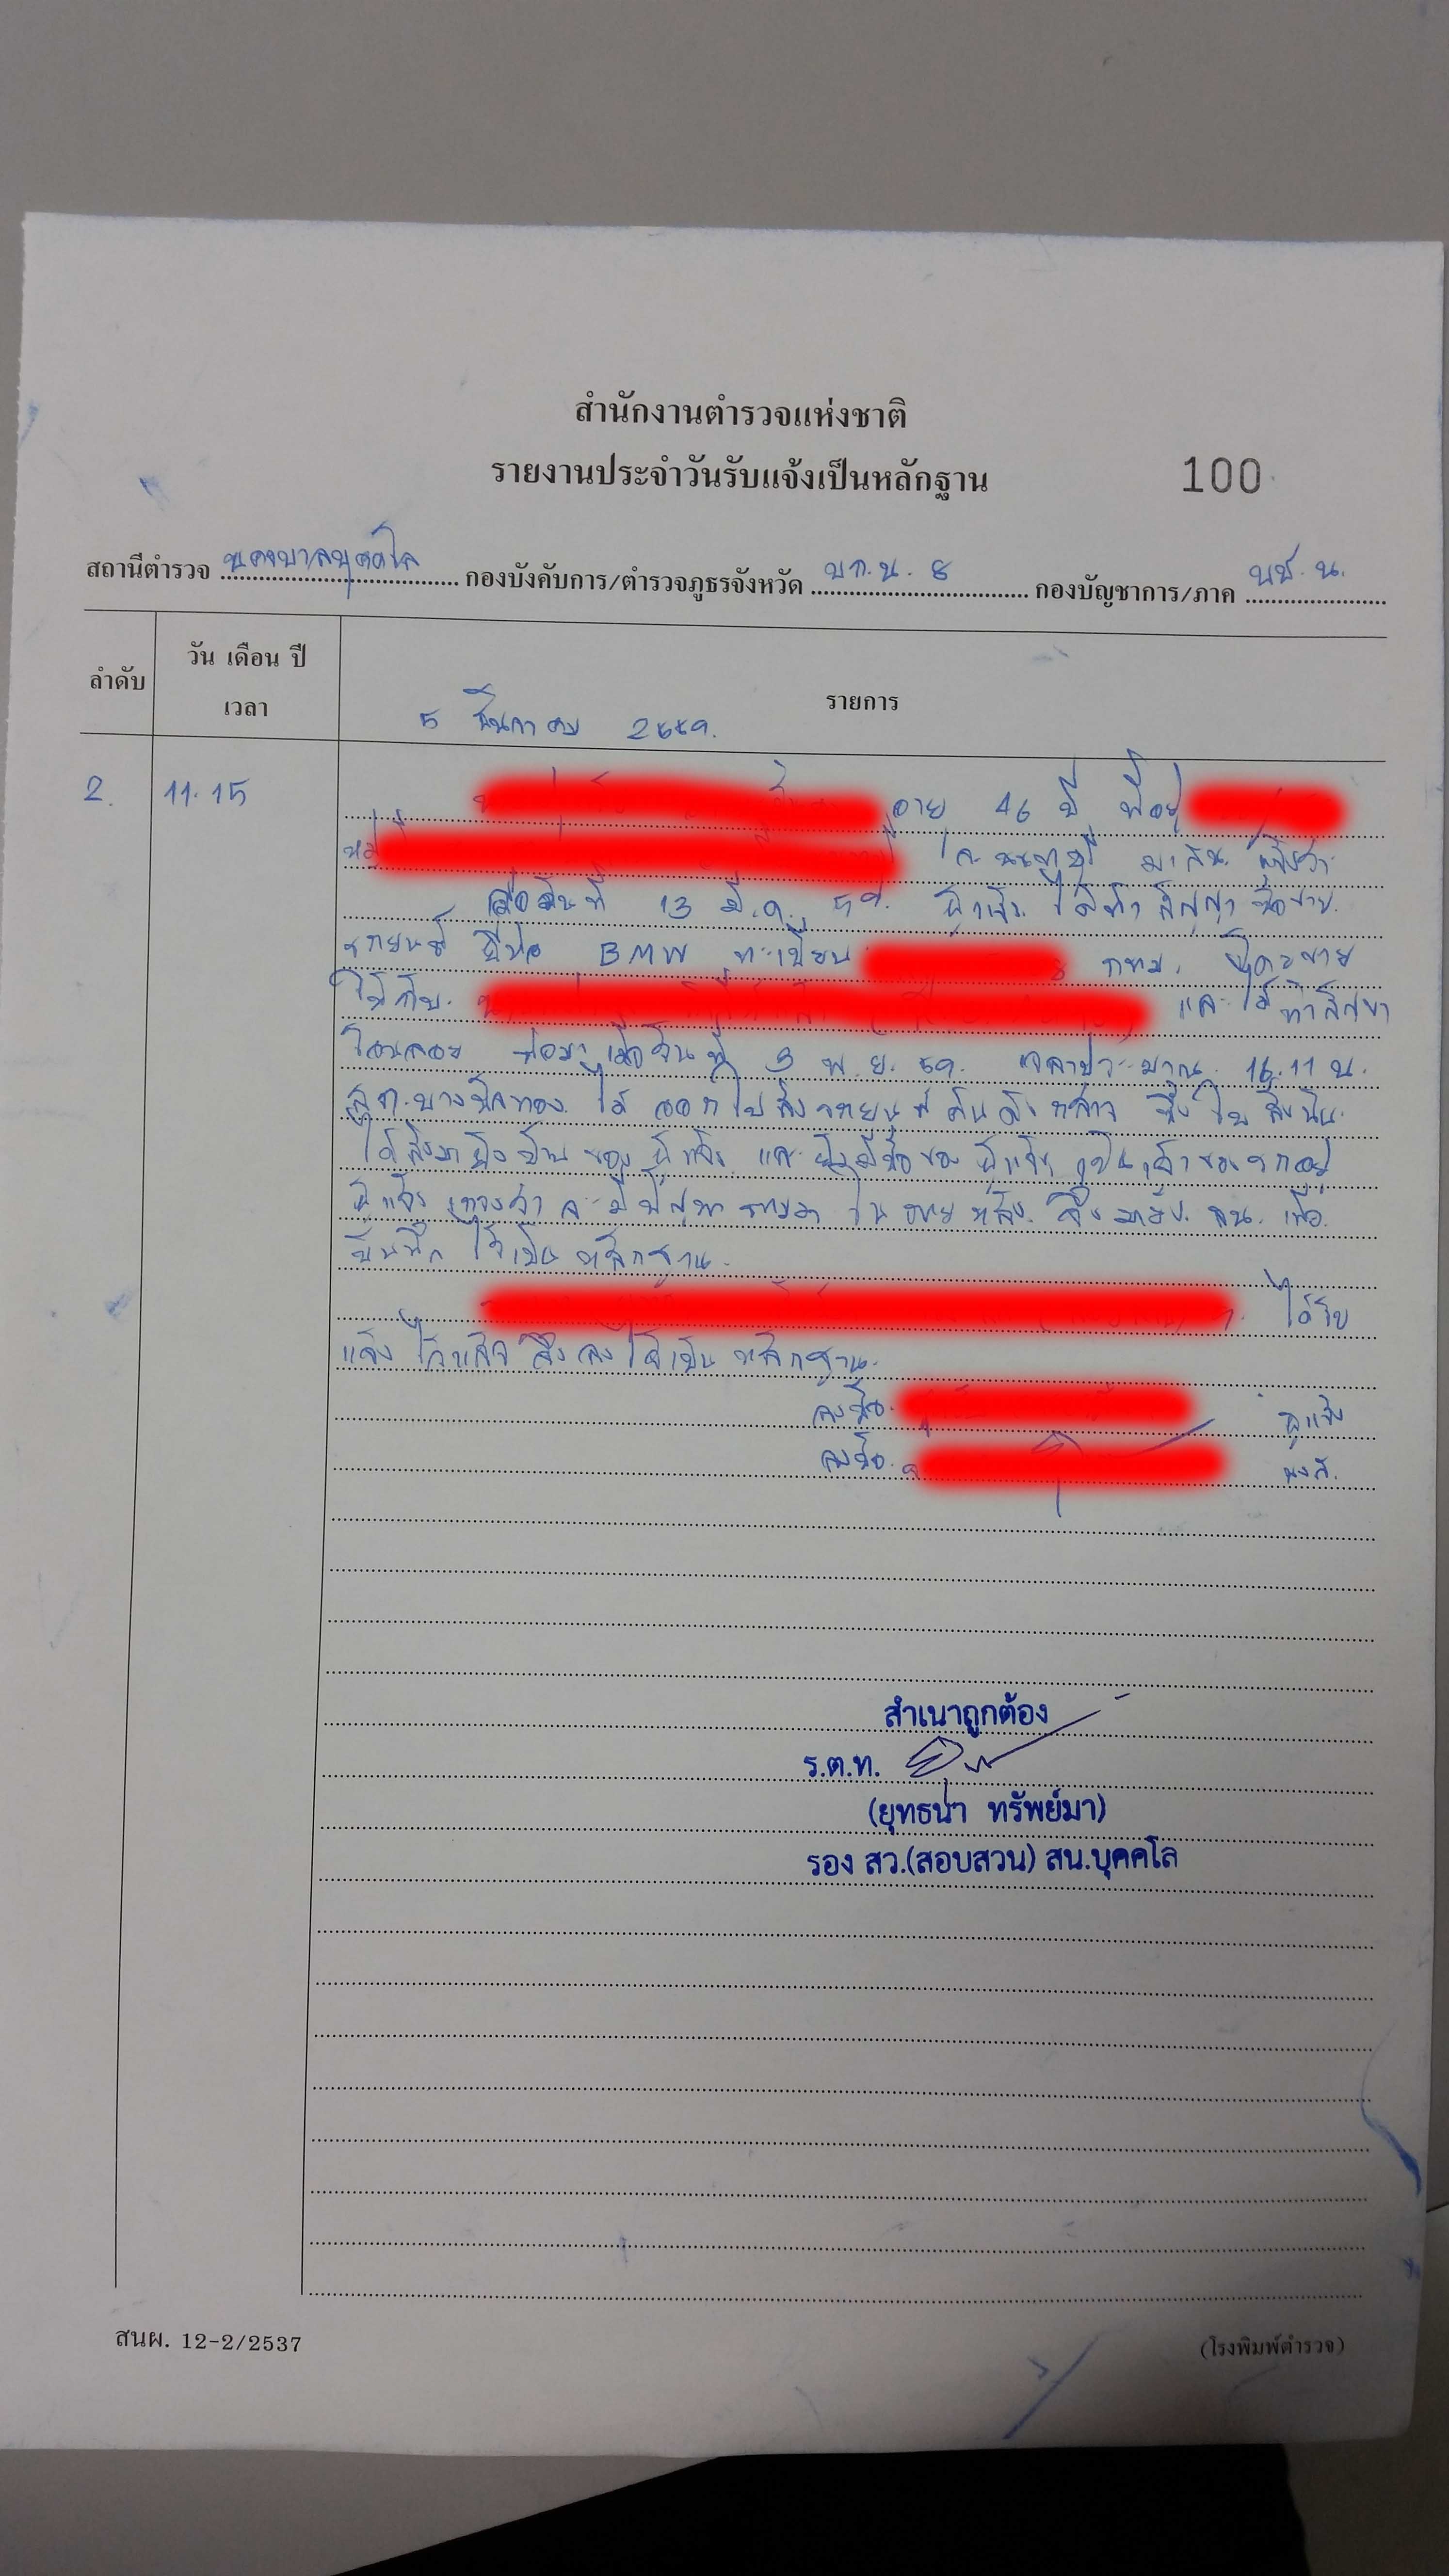 สำนักงานตำรวจแห่งชาติ
รายงานประจำวันรับแจ้งเป็นหลักฐาน
100
สถานีตำรวจ นครบาลบุคคโล กองบังคับการ/ตำรวจภูธรจังหวัด บก.น. 8 กองบัญชาการ/ภาค บช.น.
ลำดับ วัน เดือน ปี เวลา รายการ
5 ธันวาคม 2559.
2. 11.15 อายุ 46 ปี ที่อยู่
จ.นนทบุรี มา สน. แจ้งว่า
เมื่อวันที่ 13 มี.ค. 59. ผู้แจ้ง ได้ทำสัญญาซื้อขาย
รถยนต์ ยี่ห้อ BMW ทะเบียน กทม.
ให้กับ และได้ทำสัญญา
โอนลอย ต่อมาเมื่อวันที่ 3 พ.ย. 59. เวลาประมาณ 16.11 น.
ได้ออกใบสั่งรถยนต์คันดังกล่าว ซึ่งใบสั่งนั้น
ได้ส่งมายังบ้านของผู้แจ้ง และยังมีชื่อของผู้แจ้งเป็นเจ้าของรถอยู่
ผู้แจ้งเกรงว่าจะมีปัญหาตามมาในภายหลัง จึงมายัง สน. เพื่อ
บันทึกไว้เป็นหลักฐาน.
ได้รับ
แจ้งไว้แล้วจึงลงไว้เป็นหลักฐาน.
ลงชื่อ ผู้แจ้ง
ลงชื่อ พงส.
สำเนาถูกต้อง
ร.ต.ท.
(ยุทธนา ทรัพย์มา)
รอง สว.(สอบสวน) สน.บุคคโล
สนผ. 12-2/2537
(โรงพิมพ์ตำรวจ)